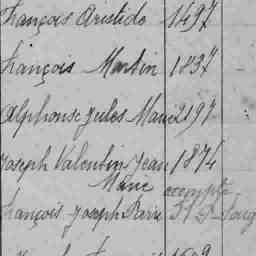 François Aristide 1497
François Martin 1837
Alphonse Jules Marie 2197
Joseph Valentin Jean 1874
Marie
François Joseph Pierre